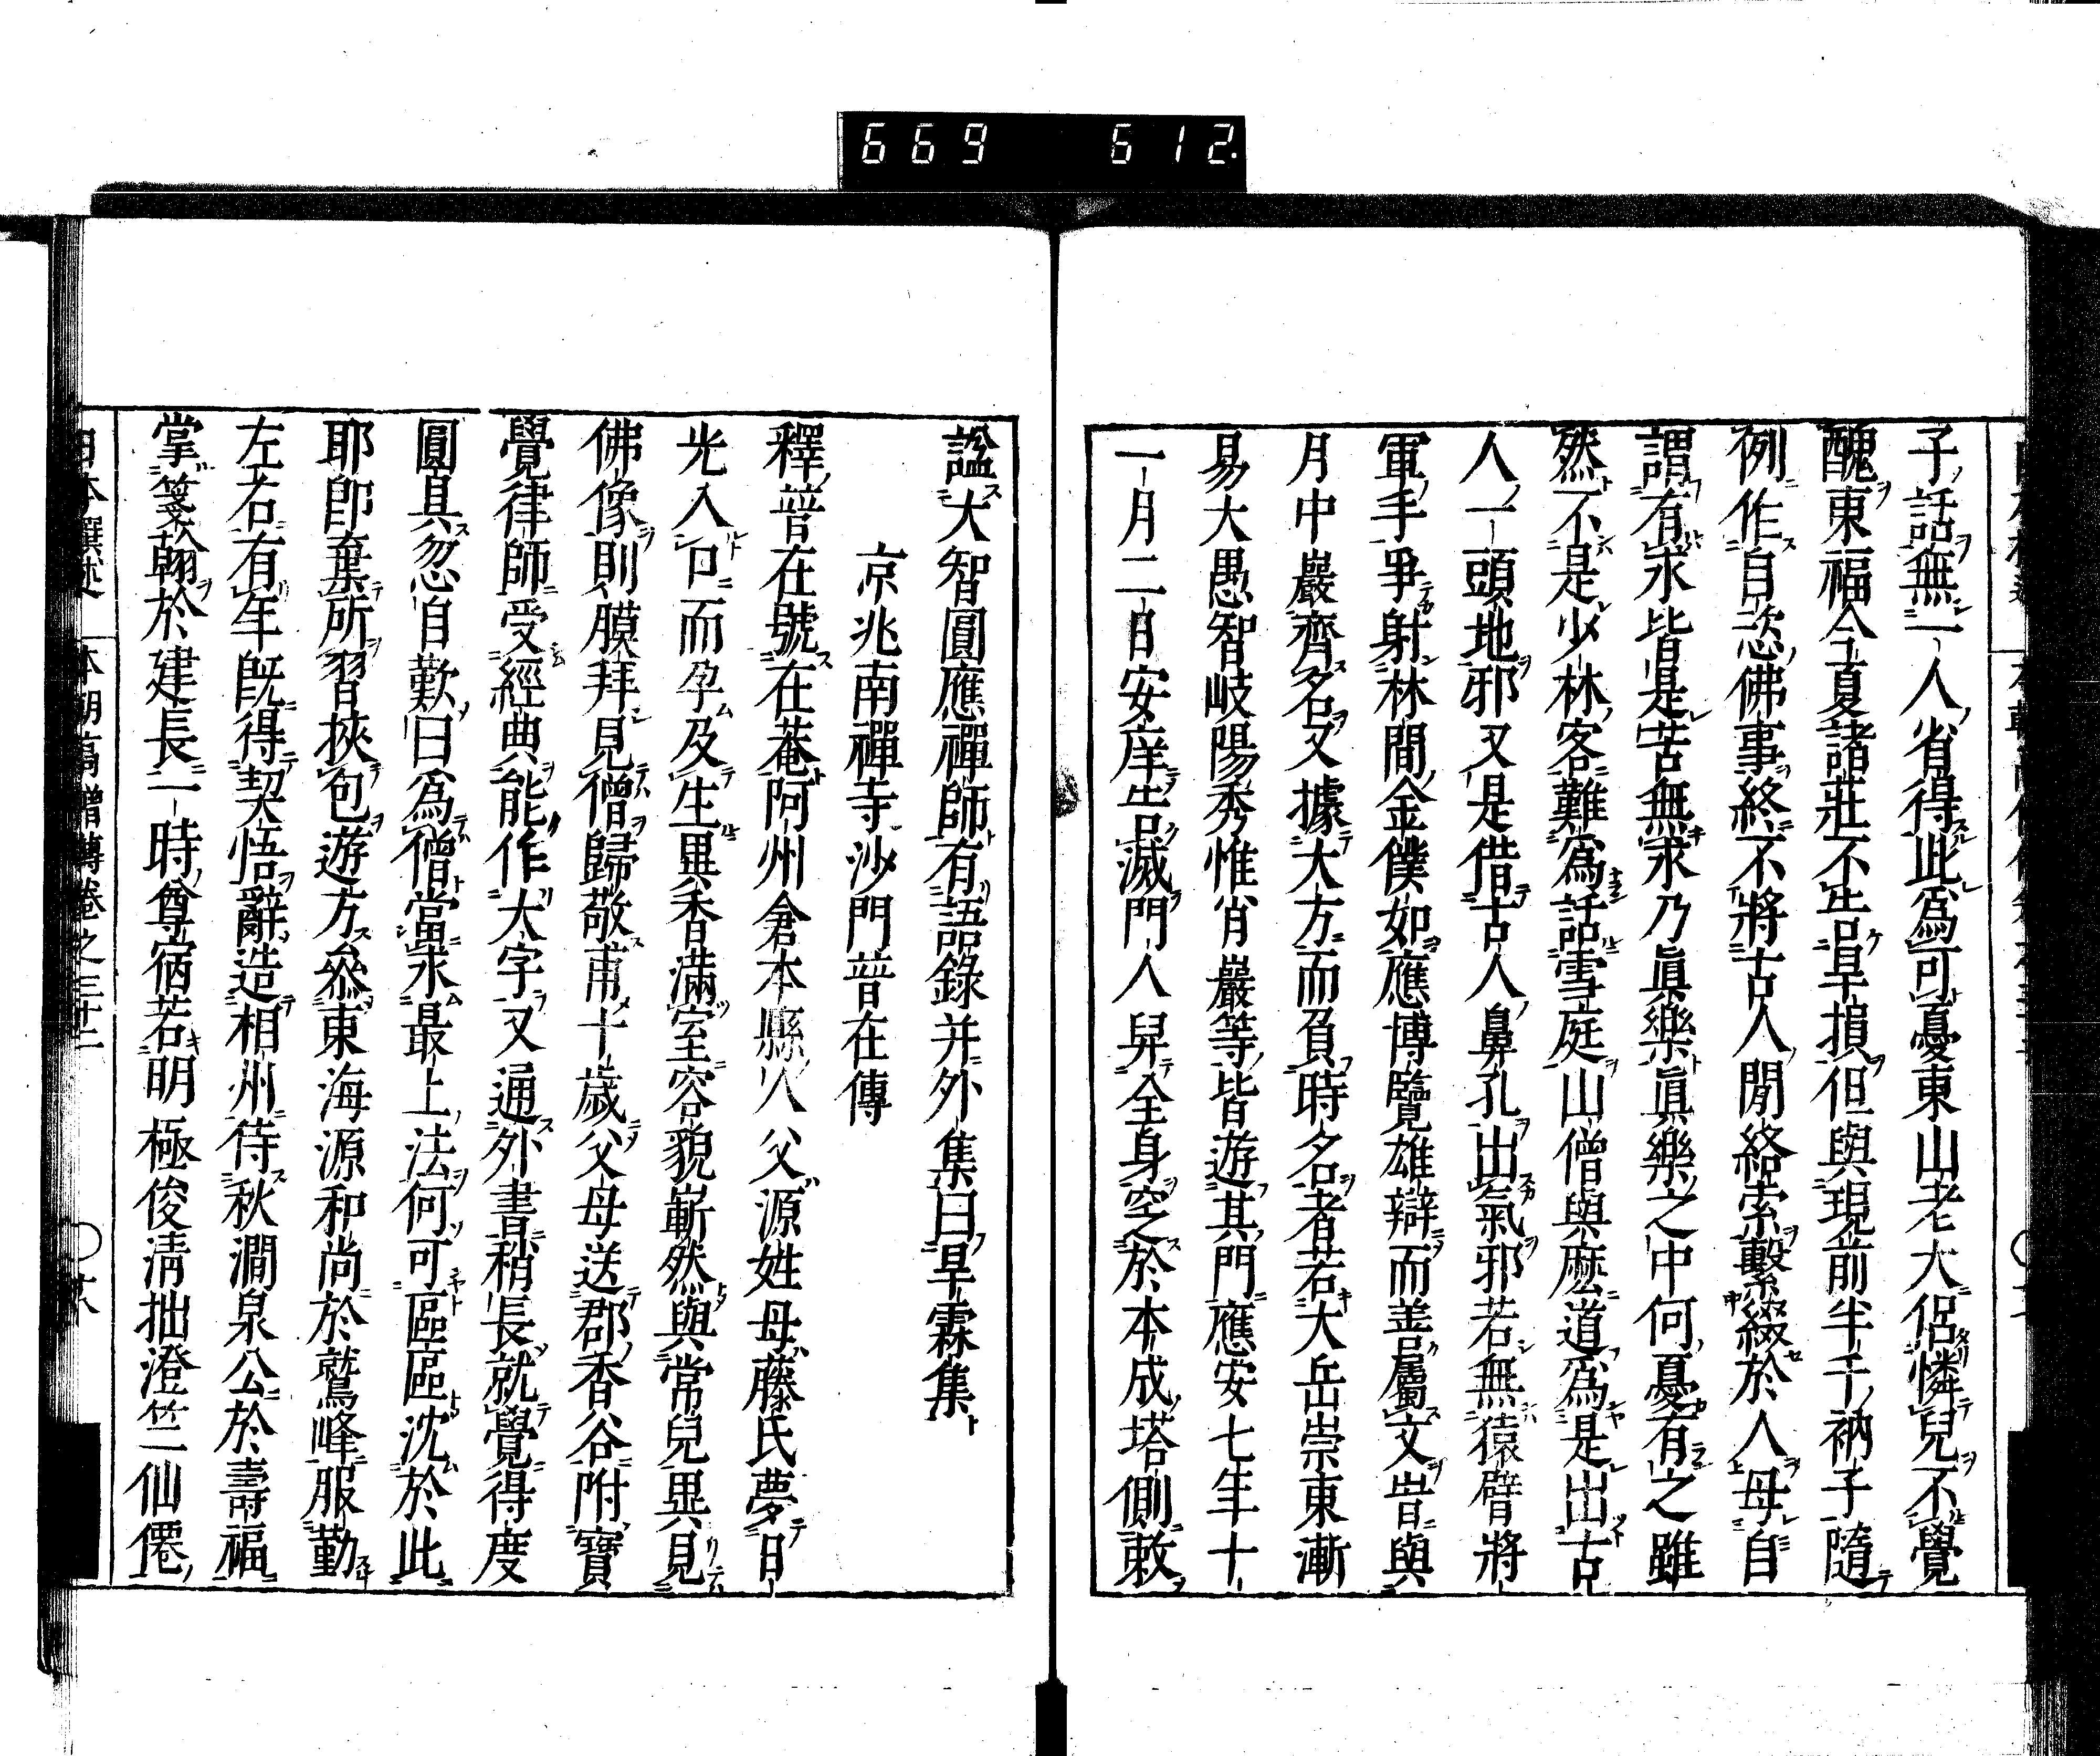 669 612.
子話無一人省得此爲可憂東山老大侶憐兒不覺
醜東福今夏諸莊不告旱損但與現前半千衲子隨
例作自恣佛事終不將古人閒絡索繫綴於人毋自
謂有求皆是苦無求乃眞樂眞樂之中何憂有之雖
然不是少林客難爲話雪庭山僧與麼道爲是出古
人一頭地邪又是借古人鼻孔出氣邪若無猿臂將
軍手爭射林間金僕如應博覽雄辯而善屬文昔與
月中巖齊名又據大方而負時名者若大岳崇東漸
易大愚智岐陽秀惟肖巖等皆遊其門應安七年十
一月二日安庠告滅門人舁全身空之於本成塔側敕
諡大智圓應禪師有語錄并外集曰旱霖集
京兆南禪寺沙門普在傳
釋普在號在菴阿州倉本縣人父源姓母藤氏夢日
光入口而孕及生異香滿室容貌嶄然與常兒異見
佛像則膜拜見僧歸敬甫十歲父母送郡香谷附寶
覺律師受經典能作大字又通外書稍長就覺得度
圓具忽自歎曰爲僧當求最上法何可區區沈於此
耶卽棄所習挾包遊方參東海源和尚於鷲峰服勤
左右有年旣得契悟辭造相州侍秋澗泉公於壽福
掌箋翰於建長一時尊宿若明極俊淸拙澄竺仙僊
日本撰述 本朝高僧傳卷之三十二 〇十八